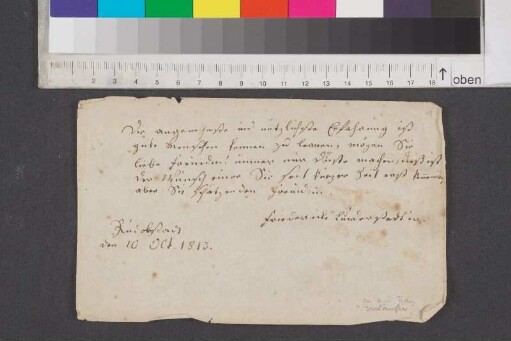 2 3 4 5 6 7 8 9 10 11 12 13 14 15 16 17 18 oben
Die angenehmste und nützlichste Erfahrung ist
gute Menschen kennen zu lernen, mögen Sie
liebe Freundin! immer nur diese machen, dieß ist
der Wunsch einer Sie seit kurzer Zeit erst kennen
aber Sie schätzenden Freundin
Friederike
Rudolstadt
den 10 Oct. 1813.